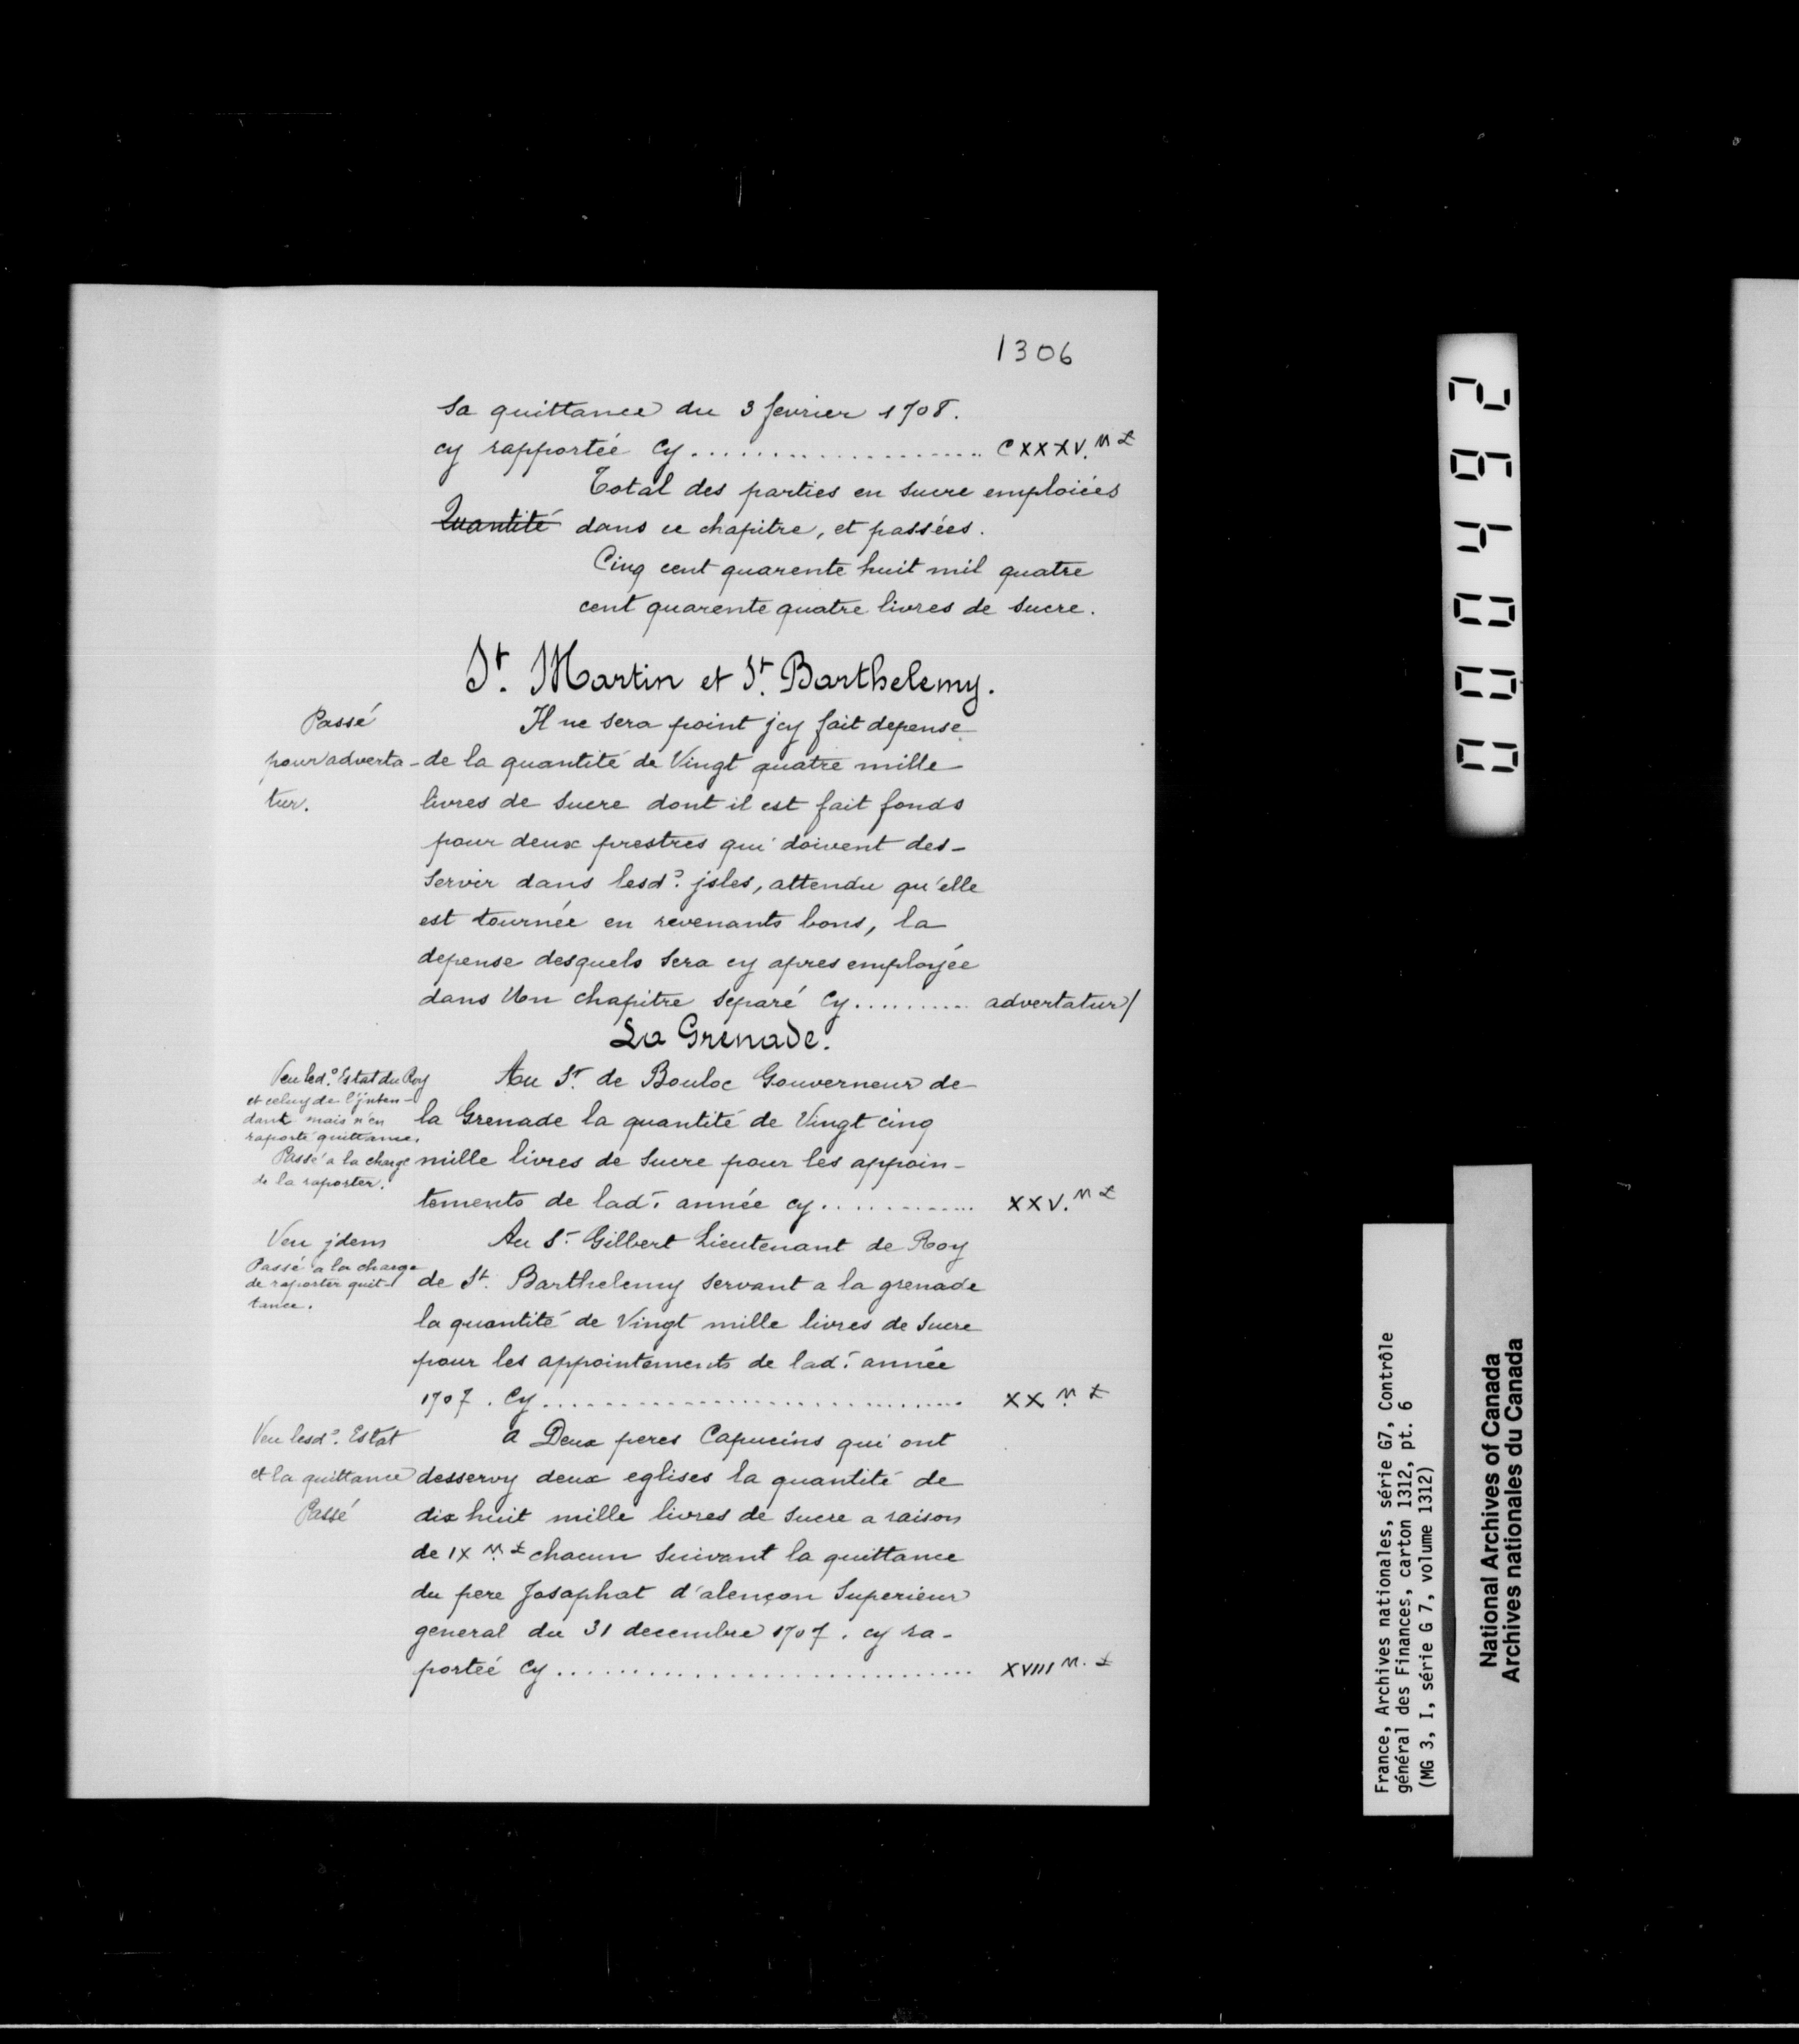 1306
sa quittance du 3 fevrier 1708.
cy rapportée Cy..................... CXXXV.M ₶
Total des parties en sucre emploiées
Quantité dans ce chapitre, et passées.
Cinq cent quarente huit mil quatre
cent quarente quatre livres de sucre.
St. Martin et St. Barthelemy.
Passé
pour adverta-
tur.
Il ne sera point jcy fait depense
de la quantité de Vingt quatre mille
livres de sucre dont il est fait fonds
pour deux prestres qui doivent des-
servir dans lesd.s jsles, attendu qu'elle
est tournée en revenants bons, la
depense desquels sera cy apres employée
dans Un chapitre separé Cy.......... advertatur/
La Grenade.
Veu led.o Estat du Roy
et celuy de l'jnten-
dant mais n'en
raporté quittance.
Passé a la charge
de la raporter.
Au Sr. de Bouloc Gouverneur de
la Grenade la quantité de Vingt cinq
mille livres de sucre pour les appoin-
tements de lad. année cy............ XXV.M ₶
Veu jdem
Passé a la charge
de raporter quit-
tance.
Au Sr. Gilbert Lieutenant de Roy
de St. Barthelemy servant a la grenade
la quantité de Vingt mille livres de sucre
pour les appointements de lad. année
1707. Cy.............................. XX.M ₶
Veu lesd.s Estat
et la quittance
Passé
a Deux peres Capucins qui ont
desservy deux eglises la quantité de
dix huit mille livres de sucre a raison
de IX M. ₶ chacun suivant la quittance
du pere Josaphat d'alençon Superieur
general du 31 decembre 1707. cy ra-
portée Cy.............................. XVIII M. ₶
000492
France, Archives nationales, série G7, Contrôle
général des Finances, carton 1312, pt. 6
(MG 3, I, série G 7, volume 1312)
National Archives of Canada
Archives nationales du Canada